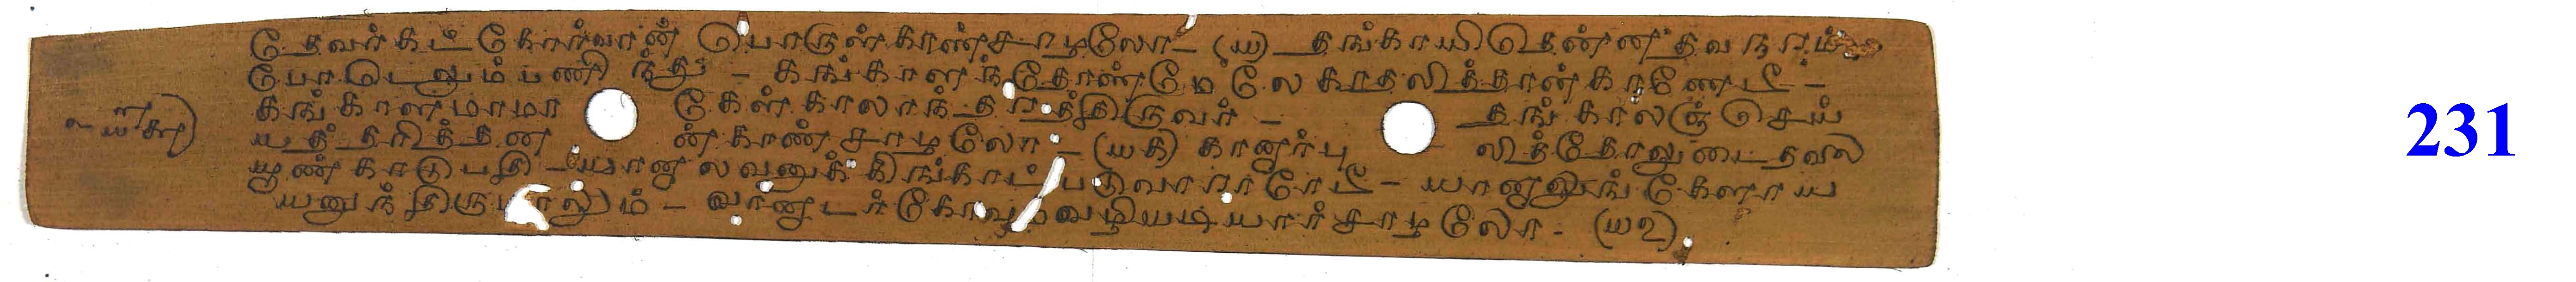 தேவர்கட்கோர்வான் பொருள்காண்சாழலோ - (௰) நங்காயிதென்னதவநரம்
போடெலும்பணிந்து - கங்காளந்தோண்மேலே காதலித்தான்காணேடீ -
கங்காளமாமா கேள்காலாந்தரத்திருவர் - தங்காலஞ்செய்
யத் தரித்தன ன்காண்சாழலோ - (௰௧) கானார்பு லித்தோலுடைதலை
யூண்காடுபதி - யானாலவனுக்கிங்காட்படுவாராரேடீ - யானாலுங்கேளாய
யனுந்திருமாலும் - வானாடர்கோவும்வழியடியார்சாழலோ - (௰௨)
231